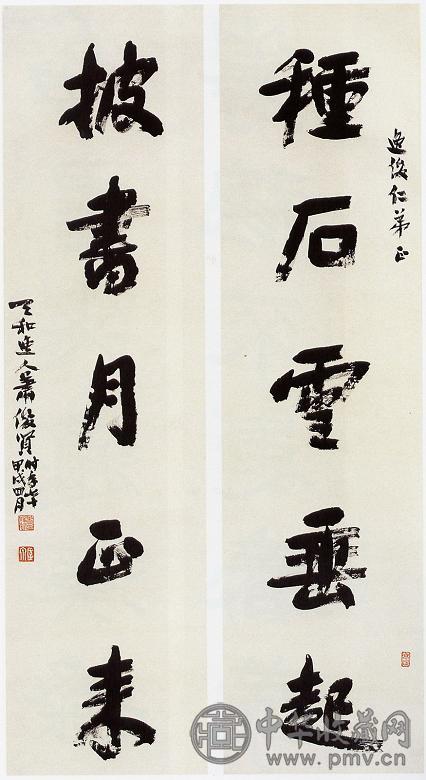 逸仁弟正
種石雲垂起
披書月正來
天和逸人蕭俊賢時年七十
甲戌四月
中华收藏网
www.pmv.cn